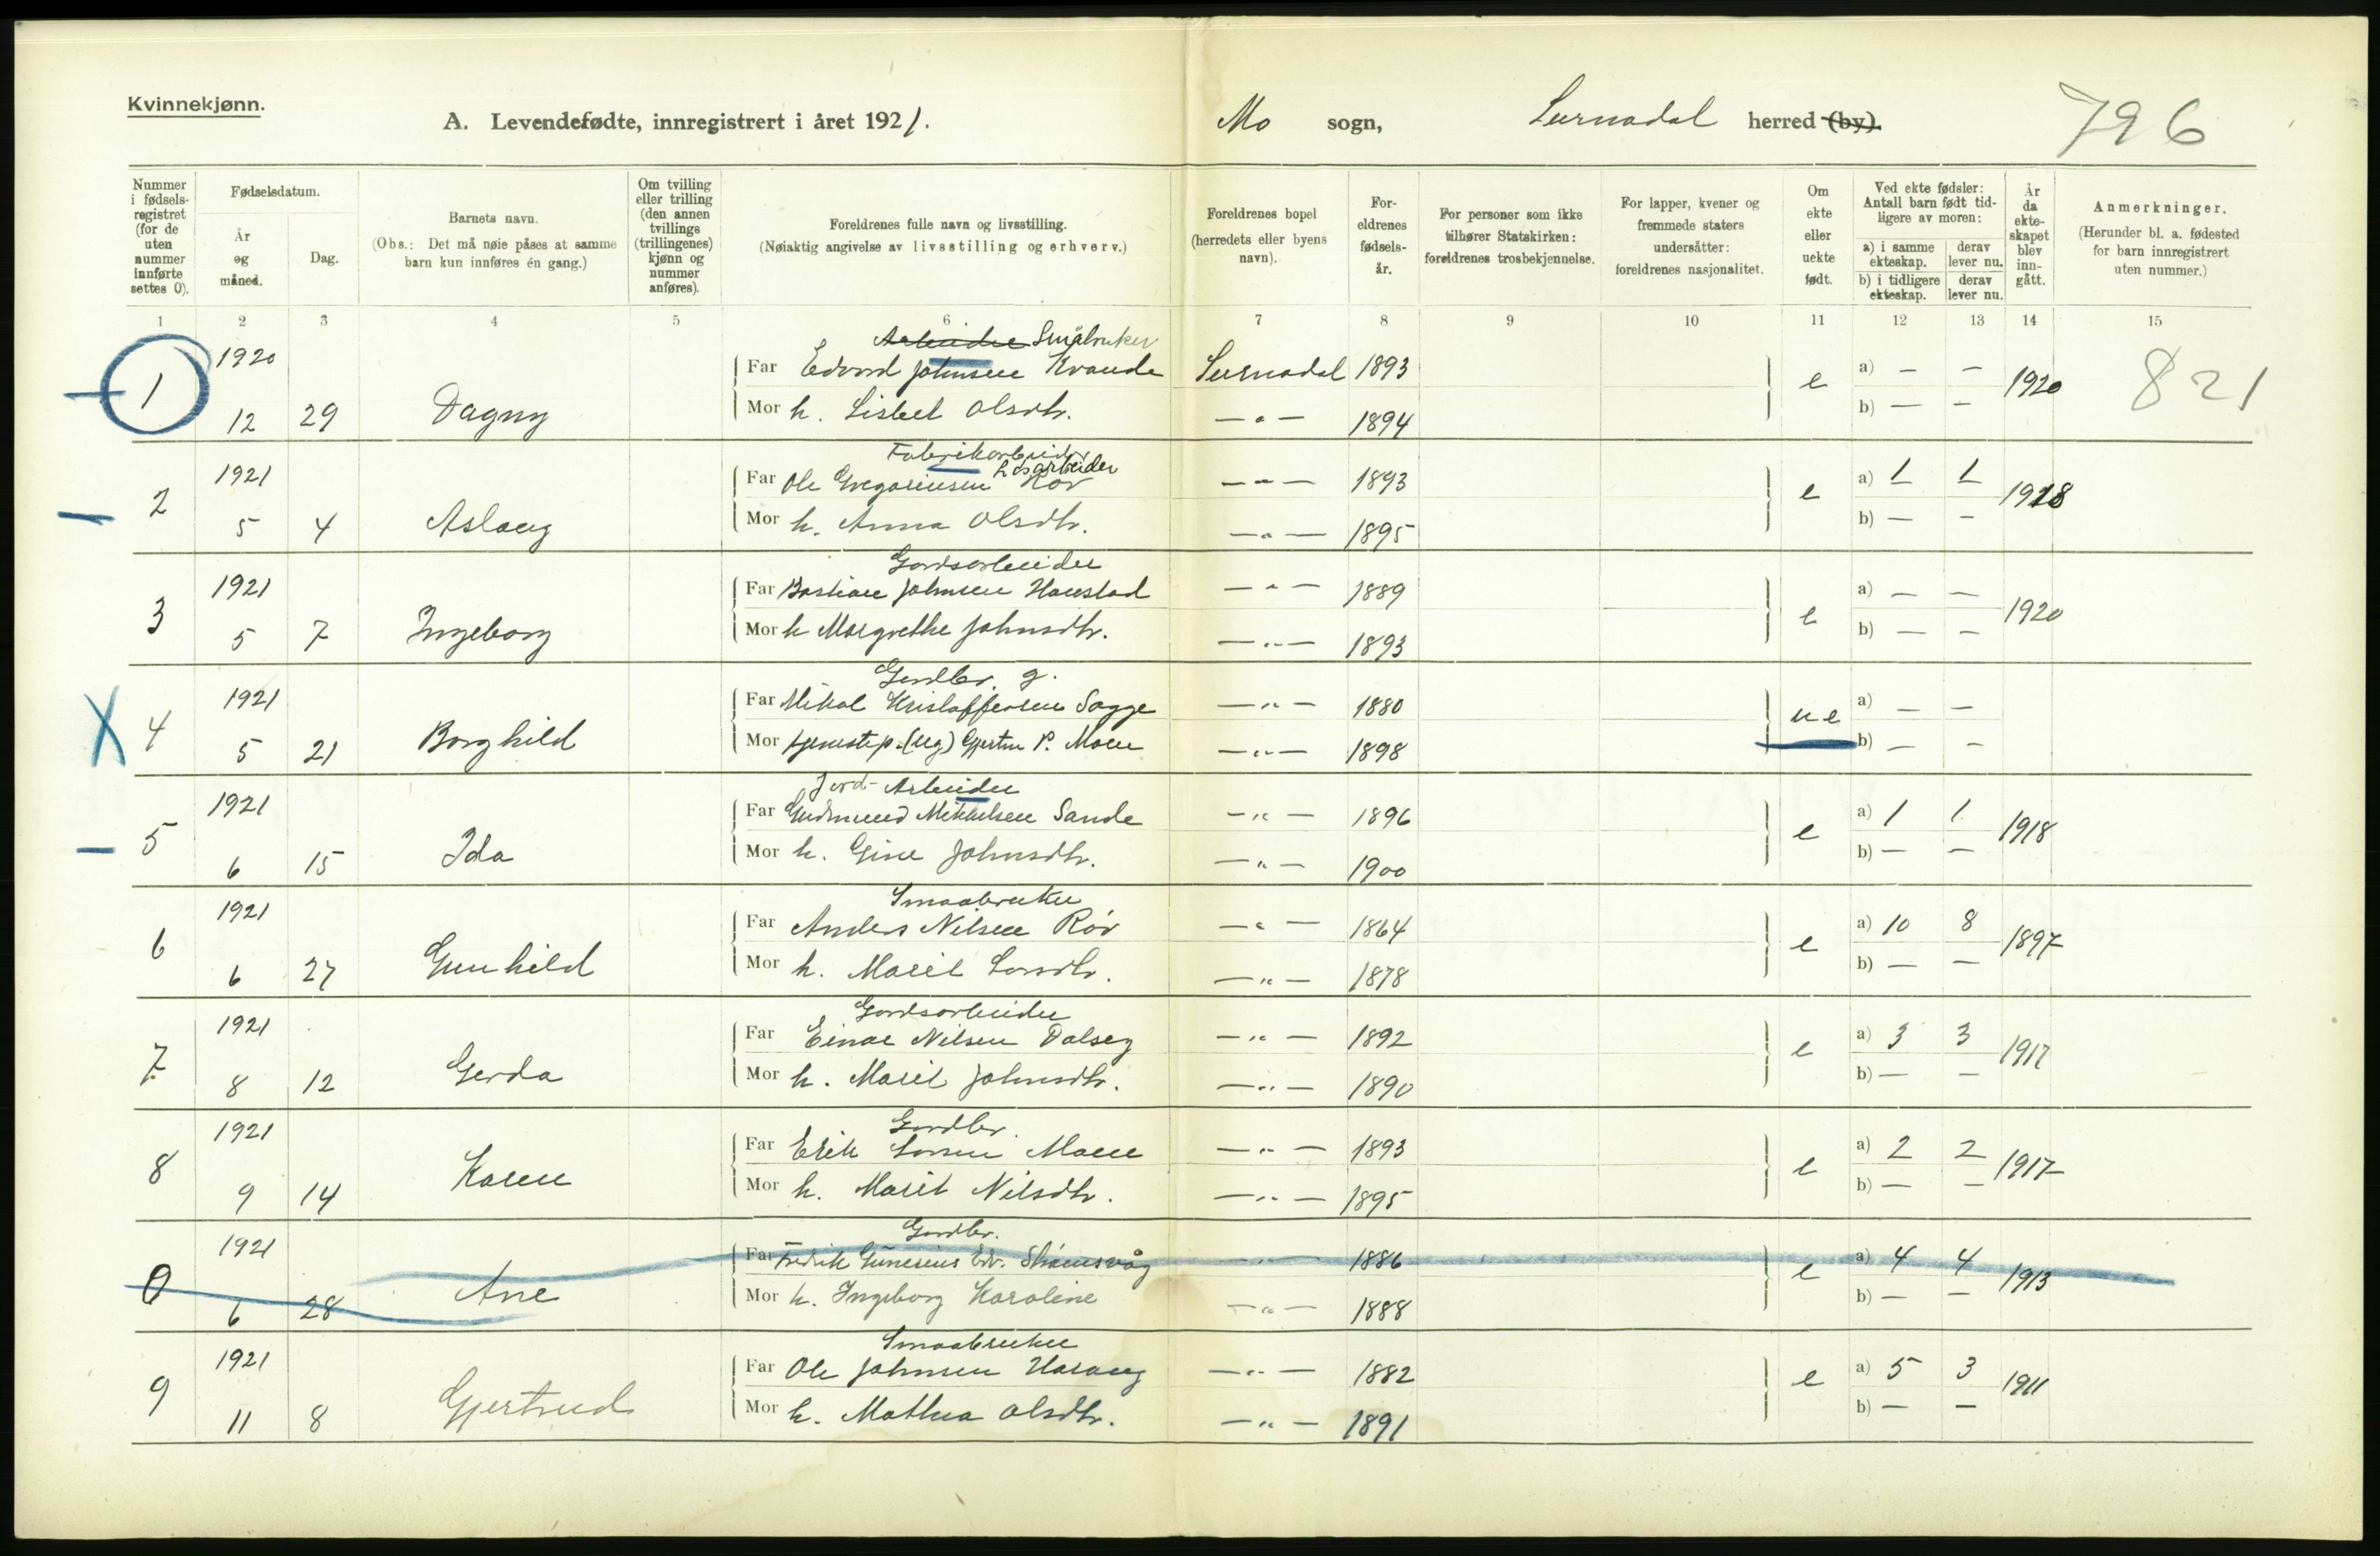 Kvinnekjønn.
A. Levendefødte, innregistrert i året 1921.
Mo sogn, Surnadal herred (by).
796
Nummer i fødselsregistret (for de uten nummer innførte settes 0).
Fødselsdatum.
År og måned.
Dag.
Barnets navn.
(Obs.: Det må nøie påses at samme barn kun innføres én gang.)
Om tvilling eller trilling (den annen tvillings (trillingenes) kjønn og nummer anføres).
Foreldrenes fulle navn og livsstilling.
(Nøiaktig angivelse av livsstilling og erhverv.)
Foreldrenes bopel (herredets eller byens navn).
Foreldrenes fødselsår.
For personer som ikke tilhører Statskirken: foreldrenes trosbekjennelse.
For lapper, kvener og fremmede staters undersåtter: foreldrenes nasjonalitet.
Om ekte eller uekte født.
Ved ekte fødsler: Antall barn født tidligere av moren:
a) i samme ekteskap.
derav lever nu.
b) i tidligere ekteskap.
derav lever nu.
År da ekteskapet blev inngått.
Anmerkninger.
(Herunder bl. a. fødested for barn innregistrert uten nummer.)
1 2 3 4 5 6 7 8 9 10 11 12 13 14 15
Arbeider Småbruker
1 1920 Far Edvard Johnsen Kvande Surnadal 1893 e a) — — 1920 821
12 29 Dagny Mor h. Lisbet Olsdtr. — " — 1894 b) — —
Fabrikarbeider
Løsarbeider
2 1921 Far Ole Gregoriusen Røv — " — 1893 e a) 1 1 1918
5 4 Aslaug Mor h. Anna Olsdtr. — " — 1895 b) — —
Gardsarbeider
3 1921 Far Bastian Johnsen Haustad — " — 1889 e a) — — 1920
5 7 Ingeborg Mor h Margrethe Johnsdtr. — " — 1893 b) — —
Gardbr. g.
X 4 1921 Far Mikal Kristoffersen Sogge — " — 1880 ue a) — —
5 21 Borghild Mor tjenestep. (ug) Gjertru P. Moen — " — 1898 b) — —
Jord-Arbeider
5 1921 Far Gudmund Mikkelsen Sande — " — 1896 e a) 1 1 1918
6 15 Ida Mor h. Gine Johnsdtr. — " — 1900 b) — —
Smaabruker
6 1921 Far Anders Nilsen Røv — " — 1864 e a) 10 8 1897
6 27 Gunhild Mor h. Marit Larsdtr. — " — 1878 b) — —
Gardsarbeider
7 1921 Far Einar Nilsen Dalseg — " — 1892 e a) 3 3 1917
8 12 Gerda Mor h. Marit Johnsdtr. — " — 1890 b) — —
Gardbr.
8 1921 Far Erik Larsen Moen — " — 1893 e a) 2 2 1917
9 14 Karen Mor h. Marit Nilsdtr. — " — 1895 b) — —
Gardbr.
0 1921 Far Fredrik Gunerius Edv. — " — 1886 e a) 4 4 1913
6 28 Ane Mor h. Ingeborg Karoline — " — 1888 b) — —
Smaabruker
9 1921 Far Ole Johnsen Harang — " — 1882 e a) 5 3 1911
11 8 Gjertrud Mor h. Mathea Olsdtr. — " — 1891 b) — —